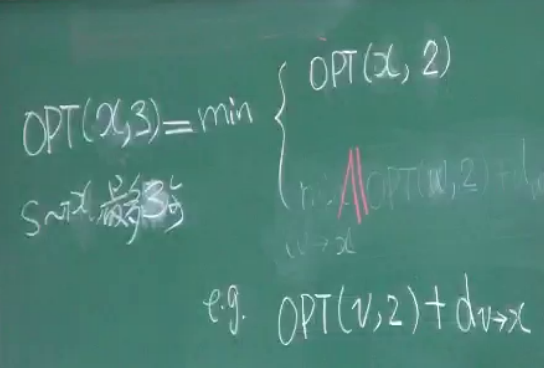 OPT(x,3)=min { OPT(x,2)
min OPT(w,2)+d
w→x
s~x 最多3步
e.g. OPT(v,2)+d v→x